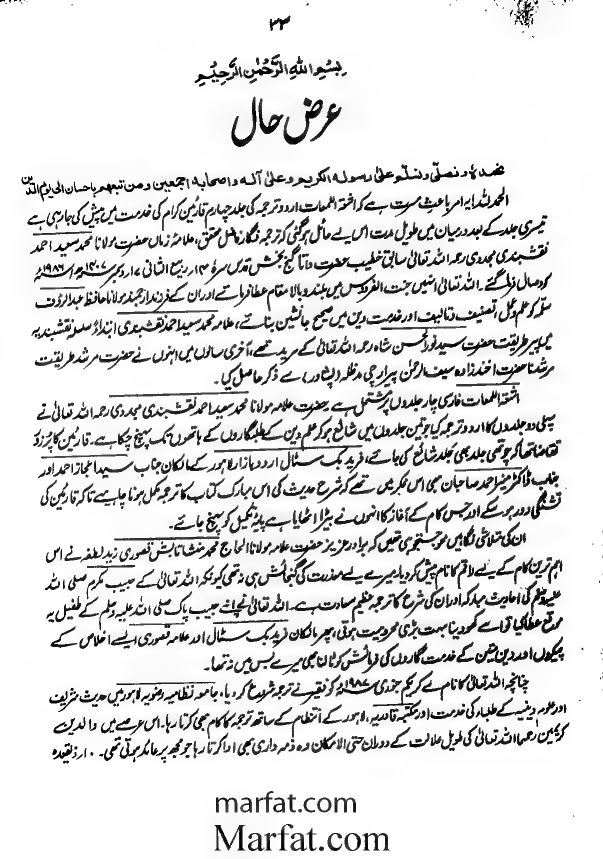 ۲۳
بسم اللہ الرحمٰن الرحیم
عرض حال
نحمدہ و نصلی و نسلم علیٰ رسولہ الکریم و علیٰ آلہ و اصحابہ اجمعین و من تبعھم باحسان الی یوم الدین
الحمد للہ! یہ امر باعث مسرت ہے کہ اشعۃ اللمعات اردو ترجمہ کی جلد چہارم قارئین کرام کی خدمت میں پیش کی جا رہی ہے
تیسری جلد کے بعد درمیان میں طویل مدت اس لیے حائل ہو گئی کہ ترجمہ نگار فاضل محقق، علامۂ زماں حضرت مولانا محمد سعید احمد
نقشبندی مجددی رحمہ اللہ تعالیٰ سابق خطیب حضرت داتا گنج بخش قدس سرہٗ ۱۴ ربیع الثانی ۱۷ دسمبر ۱۴۰۷ھ ۱۹۸۶ء
کو وصال فرما گئے۔ اللہ تعالیٰ انہیں جنت الفردوس میں بلند و بالا مقام عطا فرمائے اور ان کے فرزند ارجمند مولانا حافظ عبد الرؤف
سلمہ کو علم و عمل، تصنیف و تالیف اور خدمت دین میں صحیح جانشین بنائے، علامہ محمد سعید احمد نقشبندی ابتداءً سلسلہ نقشبندیہ
میں پیر طریقت حضرت سید نور الحسن شاہ رحمہ اللہ تعالیٰ کے مرید تھے، آخری سالوں میں انہوں نے حضرت مرشد طریقت
مرشدنا حضرت اخند زادہ سیف الرحمٰن پیر ارچی مدظلہ (پشاور) سے ذکر حاصل کیا۔
اشعۃ اللمعات فارسی چار جلدوں پر مشتمل ہے حضرت علامہ مولانا محمد سعید احمد نقشبندی مجددی رحمہ اللہ تعالیٰ نے
پہلی دو جلدوں کا اردو ترجمہ کیا جو تین جلدوں میں شائع ہو کر علم دین کے طلبگاروں کے ہاتھوں تک پہنچ چکا ہے۔ قارئین کا پُرزور
تقاضا تھا کہ چوتھی جلد بھی جلد شائع کی جائے، فرید بک سٹال اردو بازار لاہور کے مالکان جناب سید اعجاز احمد اور
جناب ڈاکٹر میٹر احمد صاحبان بھی اس فکر میں تھے کہ شرح حدیث کی اس مبارک کتاب کا ترجمہ مکمل ہونا چاہیے تاکہ قارئین کی
تشنگی دور ہو سکے اور جس کام کے آغاز کا انہوں نے بیڑا اٹھایا ہے پایۂ تکمیل کو پہنچ جائے۔
ان کی متلاشی نگاہیں محو جستجو ہی تھیں کہ برادر عزیز حضرت علامہ مولانا الحاج محمد منشا تابش قصوری زید لطفہ نے اس
اہم ترین کام کے لیے راقم کا نام پیش کر دیا، میرے لیے معذرت کی گنجائش ہی نہ تھی کیونکہ اللہ تعالیٰ کے حبیب مکرم صلی اللہ
علیہ وسلم کی احادیث مبارکہ اور ان کی شرح کا ترجمہ عظیم سعادت ہے۔ اللہ تعالیٰ نے اپنے حبیب پاک صلی اللہ علیہ وسلم کے طفیل یہ
موقع عطا کیا تو اسے کھو دینا بہت بڑی محرومیت ہوتی، پھر مالکان فرید بک سٹال اور علامہ قصوری ایسے اخلاص کے
پیکروں اور دین متین کے خدمت گاروں کی فرمائش کو ٹالنا بھی میرے بس میں نہ تھا۔
چنانچہ اللہ تعالیٰ کا نام لے کر یکم جنوری ۱۹۸۷ء کو فقیر نے ترجمہ شروع کر دیا، جامعہ نظامیہ رضویہ لاہور میں حدیث شریف
اور علوم دینیہ کے طلباء کی خدمت اور مکتبہ قادریہ، لاہور کے انتظام کے ساتھ ترجمہ کا کام بھی کرتا رہا۔ اس عرصے میں والدین
کریمین رحمہما اللہ تعالیٰ کی طویل علالت کے دوران حتی الامکان وہ ذمہ داری بھی ادا کرتا رہا جو مجھ پر عائد ہوتی تھی۔ ۱۰ ذیقعدہ
marfat.com
Marfat.com
Marfat.com